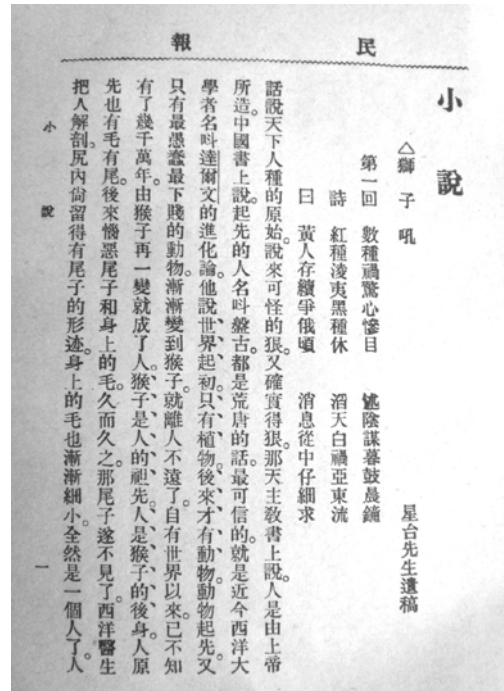 民報
小說
△獅子吼
星台先生遺稿
第一回 數種禍驚心慘目 述陰謀暮鼓晨鐘
詩 紅種淩夷黑種休 滔天白禍亞東流
曰 黃人存續爭俄頃 消息從中仔細求
話說天下人種的原始。說來可怪的狠。又確實得狠。那天主敎書上說。人是由上帝
所造。中國書上說。起先的人名叫盤古。都是荒唐的話。最可信的。就是近今西洋大
學者名叫達爾文的進化論。他說世界起初、只有植物、後來才有動物、動物起先、又
只有最愚蠢最下賤的動物。漸漸變到猴子。就離人不遠了。自有世界以來。已不知
有了幾千萬年。由猴子再一變就成了人。猴子是人的祖先、人是猴子的後身、人原
先也有毛有尾。後來惱惡尾子和身上的毛。久而久之。那尾子遂不見了。西洋醫生
把人解剖。尻內尙留得有尾子的形迹。身上的毛也漸漸細小。全然是一個人了。人
小說
一